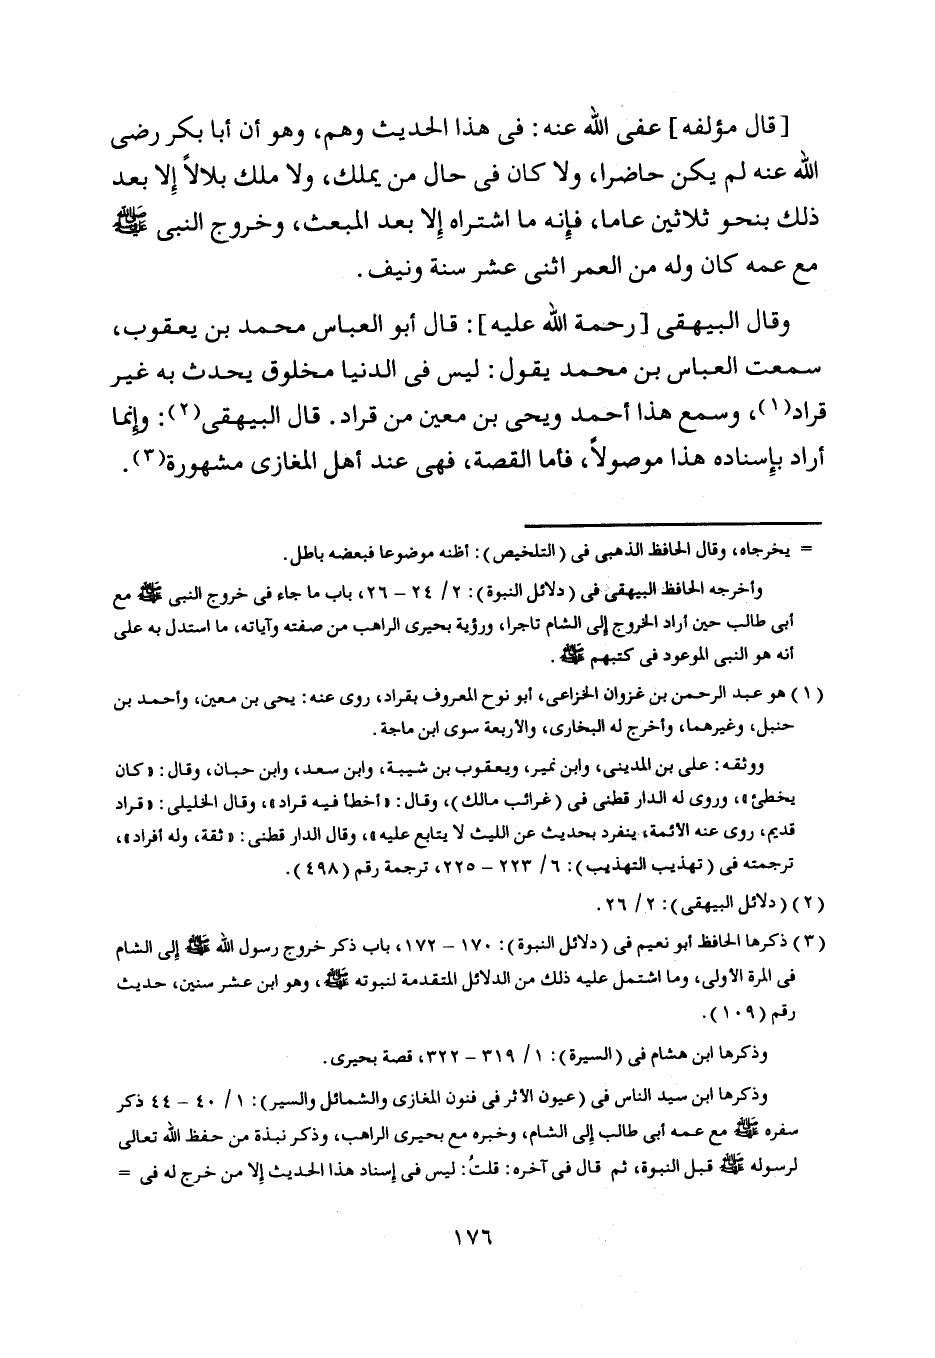 [قال مؤلفه] عفى الله عنه: فى هذا الحديث وهم، وهو أن أبا بكر رضى
الله عنه لم يكن حاضرا، ولا كان فى حال من يملك، ولا ملك بلالاً إلا بعد
ذلك بنحو ثلاثين عاما، فإنه ما اشتراه إلا بعد المبعث، وخروج النبى ﷺ
مع عمه كان وله من العمر اثنى عشر سنة ونيف.
وقال البيهقى [رحمة الله عليه]: قال أبو العباس محمد بن يعقوب،
سمعت العباس بن محمد يقول: ليس فى الدنيا مخلوق يحدث به غير
قراد(١)، وسمع هذا أحمد ويحى بن معين من قراد. قال البيهقى(٢): وإنما
أراد بإسناده هذا موصولاً، فأما القصة، فهى عند أهل المغازى مشهورة(٣).
= يخرجاه، وقال الحافظ الذهبى فى (التلخيص): أظنه موضوعا فبعضه باطل.
وأخرجه الحافظ البيهقى فى (دلائل النبوة): ٢/ ٢٤ – ٢٦، باب ما جاء فى خروج النبى ﷺ مع
أبى طالب حين أراد الخروج إلى الشام تاجرا، ورؤية بحيرى الراهب من صفته وآياته، ما استدل به على
أنه هو النبى الموعود فى كتبهم ﷺ.
(١) هو عبد الرحمن بن غزوان الخزاعى، أبو نوح المعروف بقراد، روى عنه: يحى بن معين، وأحمد بن
حنبل، وغيرهما، وأخرج له البخارى، والأربعة سوى ابن ماجة.
ووثقه: على بن المدينى، وابن نمير، ويعقوب بن شيبة، وابن سعد، وابن حبان، وقال: «كان
يخطئ»، وروى له الدار قطنى فى (غرائب مالك)، وقال: «أخطأ فيه قراد»، وقال الخليلى: «قراد
قديم، روى عنه الأئمة، ينفرد بحديث عن الليث لا يتابع عليه»، وقال الدار قطنى: «ثقة، وله أفراد»،
ترجمته فى (تهذيب التهذيب): ٦/ ٢٢٣ – ٢٢٥، ترجمة رقم (٤٩٨).
(٢) (دلائل البيهقى): ٢/ ٢٦.
(٣) ذكرها الحافظ أبو نعيم فى (دلائل النبوة): ١٧٠ – ١٧٢، باب ذكر خروج رسول الله ﷺ إلى الشام
فى المرة الأولى، وما اشتمل عليه ذلك من الدلائل المتقدمة لنبوته ﷺ، وهو ابن عشر سنين، حديث
رقم (١٠٩).
وذكرها ابن هشام فى (السيرة): ١/ ٣١٩ – ٣٢٢، قصة بحيرى.
وذكرها ابن سيد الناس فى (عيون الأثر فى فنون المغازى والشمائل والسير): ١/ ٤٠ – ٤٤ ذكر
سفره ﷺ مع عمه أبى طالب إلى الشام، وخبره مع بحيرى الراهب، وذكر نبذة من حفظ الله تعالى
لرسوله ﷺ قبل النبوة، ثم قال فى آخره: قلتُ: ليس فى إسناد هذا الحديث إلا من خرج له فى =
١٧٦